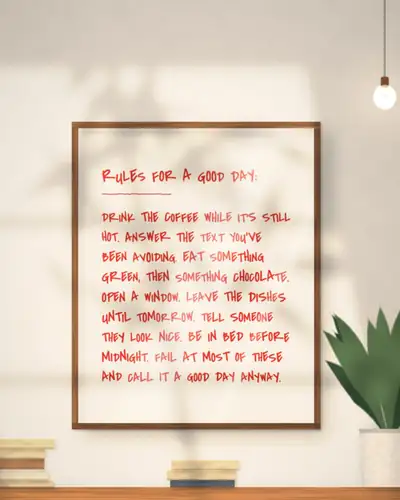 RULES FOR A GOOD DAY:
DRINK THE COFFEE WHILE IT'S STILL
HOT. ANSWER THE TEXT YOU'VE
BEEN AVOIDING. EAT SOMETHING
GREEN, THEN SOMETHING CHOCOLATE.
OPEN A WINDOW. LEAVE THE DISHES
UNTIL TOMORROW. TELL SOMEONE
THEY LOOK NICE. BE IN BED BEFORE
MIDNIGHT. FAIL AT MOST OF THESE
AND CALL IT A GOOD DAY ANYWAY.